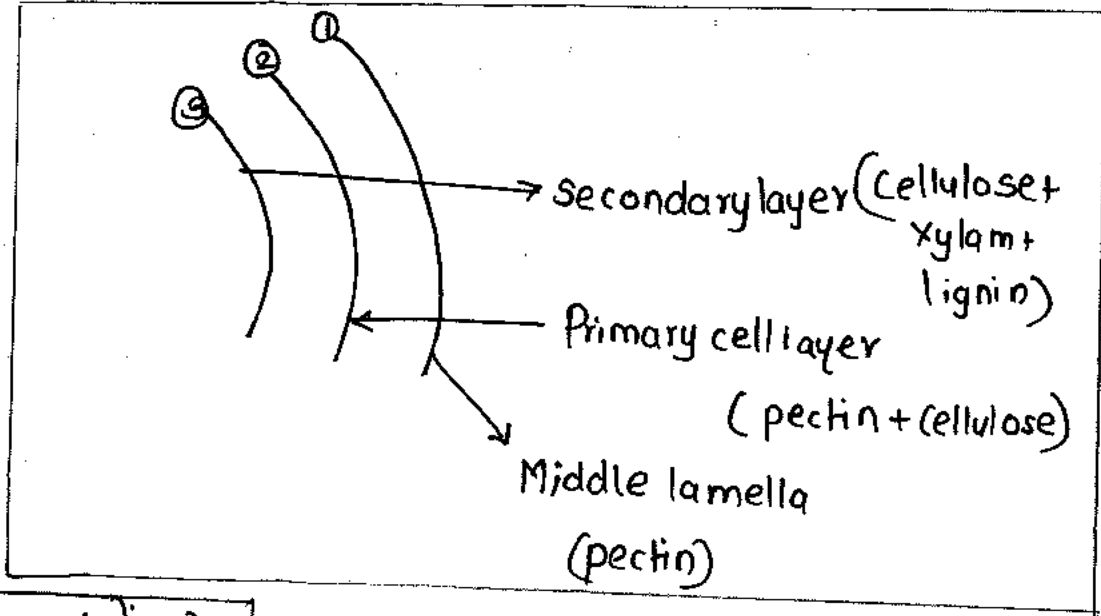 ①
②
③
Secondary layer (Cellulose+
xylam+
lignin)
Primary cell layer
(pectin + cellulose)
Middle lamella
(pectin)